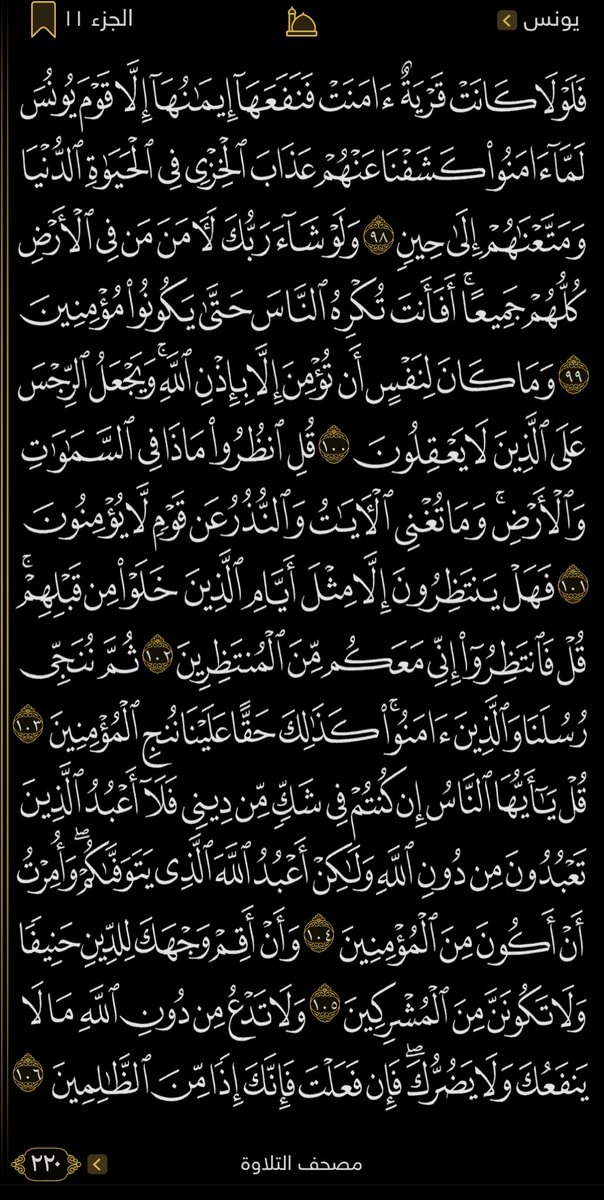 يونس
الجزء ١١
فَلَوْلَا كَانَتْ قَرْيَةٌ ءَامَنَتْ فَنَفَعَهَآ إِيمَٰنُهَآ إِلَّا قَوْمَ يُونُسَ
لَمَّآ ءَامَنُوا۟ كَشَفْنَا عَنْهُمْ عَذَابَ ٱلْخِزْىِ فِى ٱلْحَيَوٰةِ ٱلدُّنْيَا
وَمَتَّعْنَٰهُمْ إِلَىٰ حِينٍ ٩٨ وَلَوْ شَآءَ رَبُّكَ لَـَٔامَنَ مَن فِى ٱلْأَرْضِ
كُلُّهُمْ جَمِيعًا ۚ أَفَأَنتَ تُكْرِهُ ٱلنَّاسَ حَتَّىٰ يَكُونُوا۟ مُؤْمِنِينَ
٩٩ وَمَا كَانَ لِنَفْسٍ أَن تُؤْمِنَ إِلَّا بِإِذْنِ ٱللَّهِ ۚ وَيَجْعَلُ ٱلرِّجْسَ
عَلَى ٱلَّذِينَ لَا يَعْقِلُونَ ١٠٠ قُلِ ٱنظُرُوا۟ مَاذَا فِى ٱلسَّمَٰوَٰتِ
وَٱلْأَرْضِ ۚ وَمَا تُغْنِى ٱلْـَٔايَٰتُ وَٱلنُّذُرُ عَن قَوْمٍ لَّا يُؤْمِنُونَ
١٠١ فَهَلْ يَنتَظِرُونَ إِلَّا مِثْلَ أَيَّامِ ٱلَّذِينَ خَلَوْا۟ مِن قَبْلِهِمْ ۚ
قُلْ فَٱنتَظِرُوٓا۟ إِنِّى مَعَكُم مِّنَ ٱلْمُنتَظِرِينَ ١٠٢ ثُمَّ نُنَجِّى
رُسُلَنَا وَٱلَّذِينَ ءَامَنُوا۟ ۚ كَذَٰلِكَ حَقًّا عَلَيْنَا نُنجِ ٱلْمُؤْمِنِينَ ١٠٣
قُلْ يَٰٓأَيُّهَا ٱلنَّاسُ إِن كُنتُمْ فِى شَكٍّ مِّن دِينِى فَلَآ أَعْبُدُ ٱلَّذِينَ
تَعْبُدُونَ مِن دُونِ ٱللَّهِ وَلَٰكِنْ أَعْبُدُ ٱللَّهَ ٱلَّذِى يَتَوَفَّىٰكُمْ ۖ وَأُمِرْتُ
أَنْ أَكُونَ مِنَ ٱلْمُؤْمِنِينَ ١٠٤ وَأَنْ أَقِمْ وَجْهَكَ لِلدِّينِ حَنِيفًا
وَلَا تَكُونَنَّ مِنَ ٱلْمُشْرِكِينَ ١٠٥ وَلَا تَدْعُ مِن دُونِ ٱللَّهِ مَا لَا
يَنفَعُكَ وَلَا يَضُرُّكَ ۖ فَإِن فَعَلْتَ فَإِنَّكَ إِذًا مِّنَ ٱلظَّٰلِمِينَ ١٠٦
مصحف التلاوة
٢٢٠